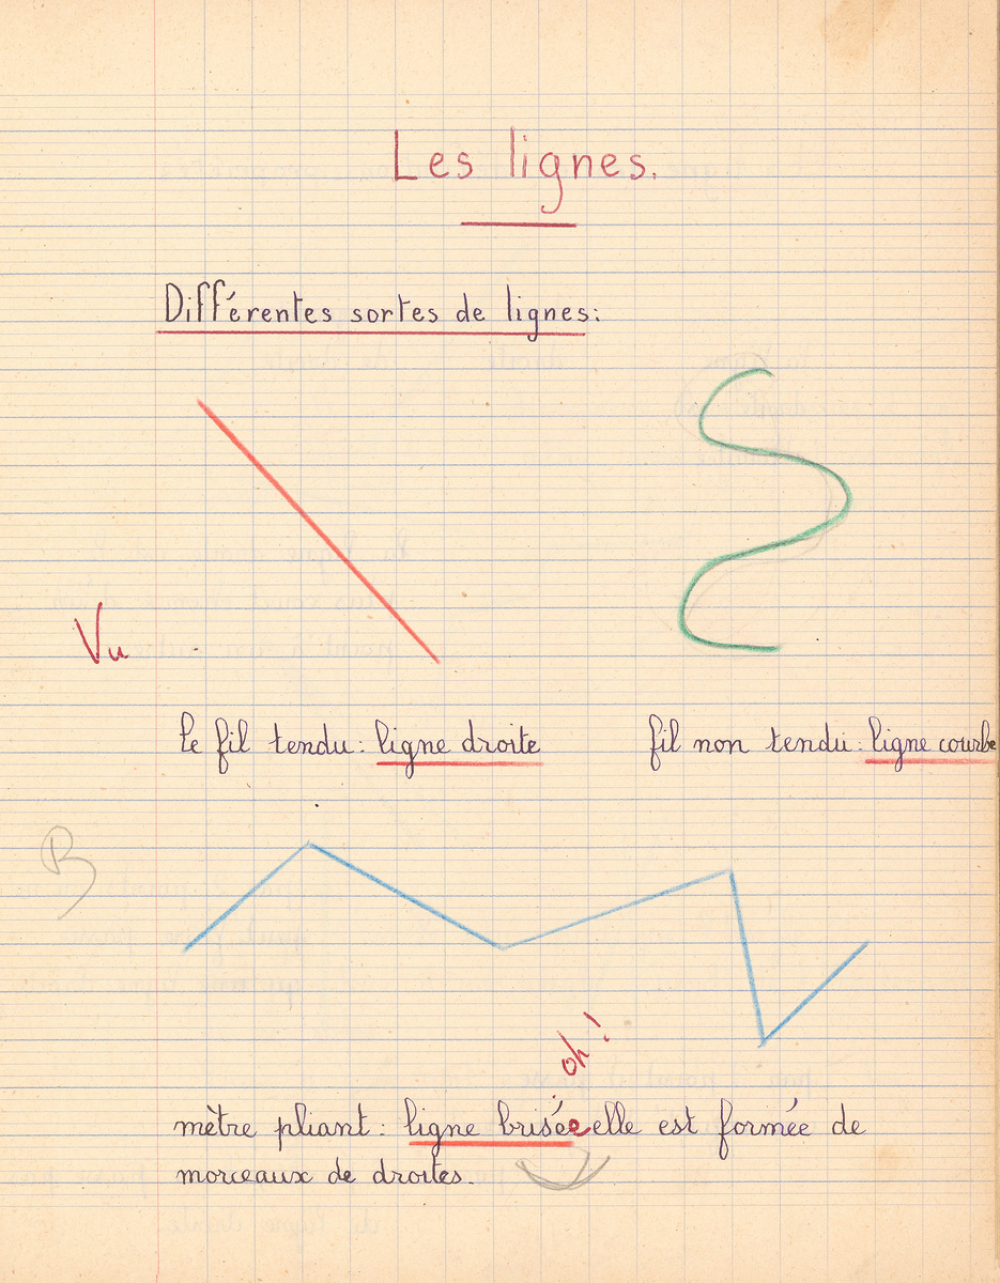 Les lignes.
Différentes sortes de lignes:
Vu
le fil tendu: ligne droite
fil non tendu: ligne courbe
B
oh!
mètre pliant: ligne brisée elle est formée de
morceaux de droites.